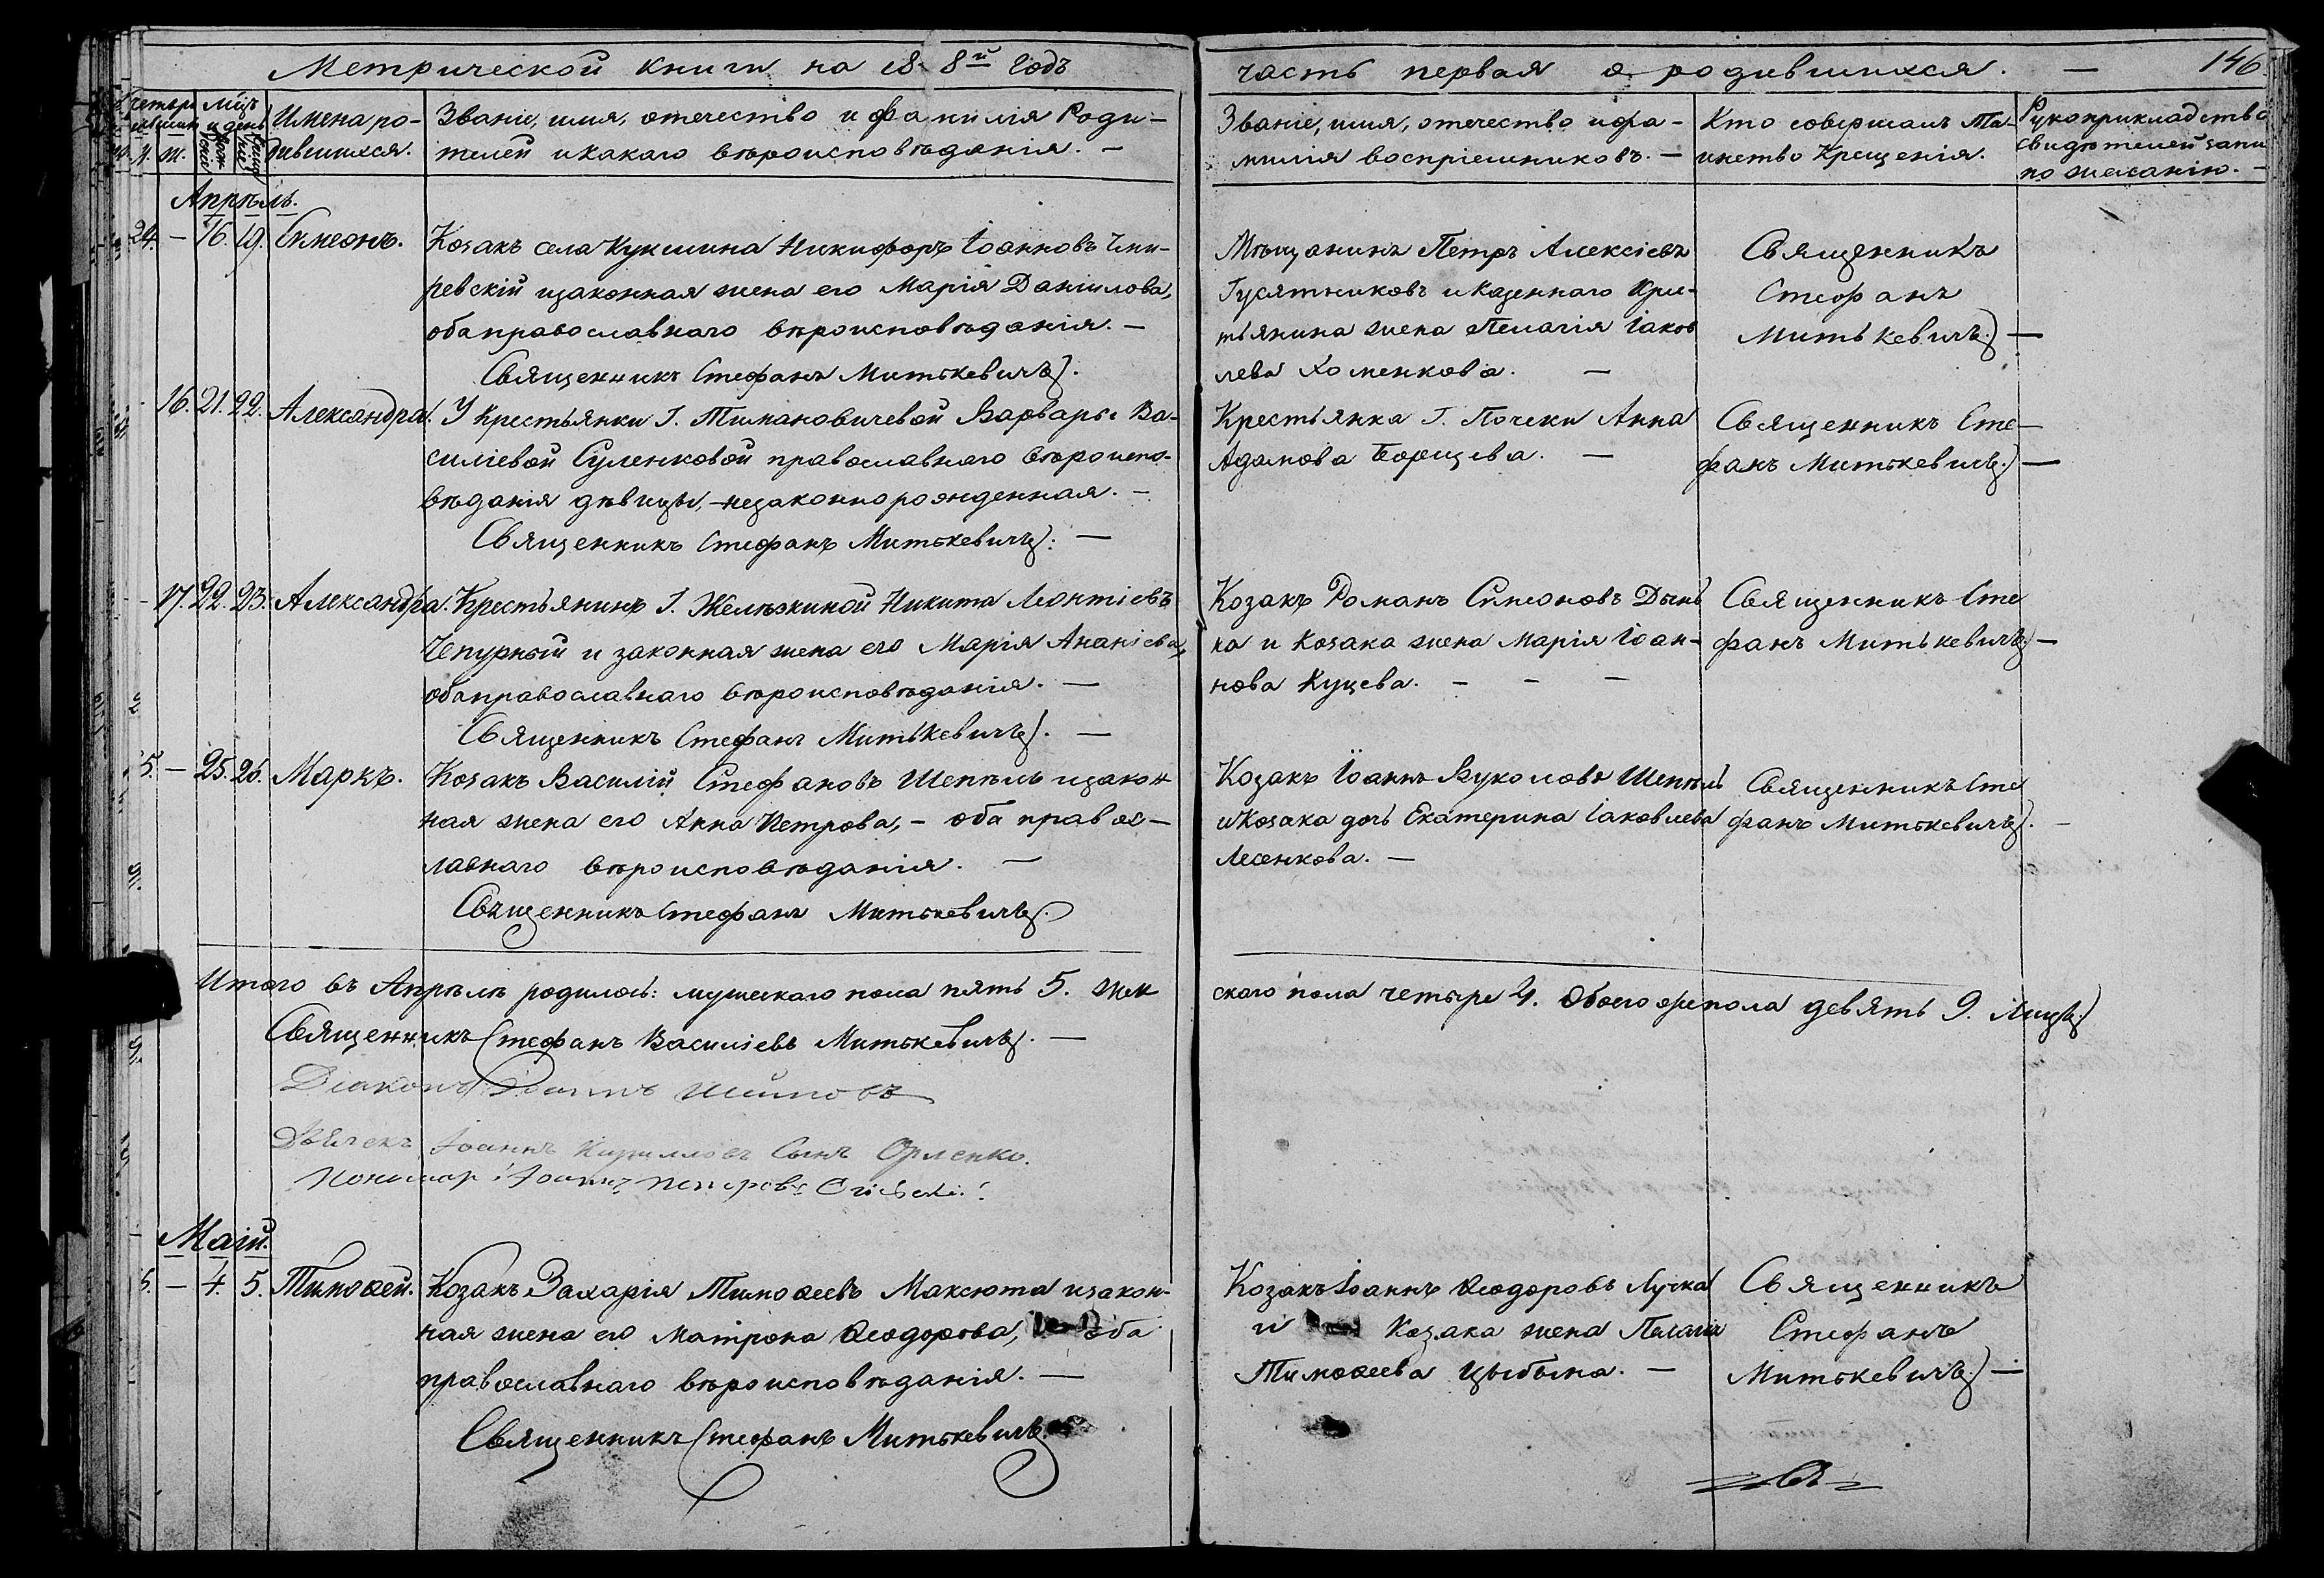 Метрической книги на 18 8й Годъ
часть первая о родившихся. — 146
Имена ро-
дившихся.
Званіе, имя, отечество и фамилія Роди-
телей и какаго вѣроисповѣданія. —
Званіе, имя, отечество и фа-
милія воспріемниковъ. —
Кто совершалъ Та-
инство Крещенія.
Рукоприкладство
свидѣтелей запи
по желанію. —
Апрѣль.
24. — 16. 19. Симеонъ.
Козакъ села Кукшина Никифоръ Іоанновъ
ревскій изаконная жена его Марія Даніилова,
оба православнаго вѣроисповѣданія. —
Священникъ Стефанъ Митькевичъ.
Мѣщанинъ Петръ Алексіевъ
Гусятниковъ и Казеннаго Крес-
тьянина жена Пелагія Іаков
лева Хоменкова. —
Священникъ
Стефанъ
Митькевичъ. —
16. 21. 22. Александра.
У Крестьянки Г. Тимановичевой Варвары Ва-
силіевой Суленковой православнаго вѣроиспо-
вѣданія дѣвицы, — незаконнорожденная. —
Священникъ Стефанъ Митькевичъ. —
Крестьянка Г. Почеки Анна
Адамова Борщева. —
Священникъ Сте-
фанъ Митькевичъ. —
17. 22. 23. Александра.
Крестьянинъ Г. Желѣзкиной Никита Леонтіевъ
Чепурный и законная жена его Марія Ананіева,
оба православнаго вѣроисповѣданія. —
Священникъ Стефанъ Митькевичъ. —
Козакъ Романъ Симеоновъ Дынь
ка и Козака жена Марія Іоан-
нова Куцева. — — —
Священникъ Сте
фанъ Митькевичъ. —
5. — 25. 26. Маркъ.
Козакъ Василій Стефановъ Шепѣль изакон
ная жена его Анна Петрова, — оба правос-
лавнаго вѣроисповѣданія. —
Священникъ Стефанъ Митькевичъ.
Козакъ Іоаннъ Вуколовъ Шепѣль
и Козака дочь Екатерина Іаковлева
Лесенкова. —
Священникъ Сте
фанъ Митькевичъ. —
Итого въ Апрѣлѣ родилось: мужескаго пола пять 5. жен
скаго пола четыре 4. Обоего же пола девять 9. лицъ.
Священникъ Стефанъ Василіевъ Митькевичъ. —
Діаконъ Іоаннъ
Дьячекъ Іоаннъ Кирилловъ Сынъ Орленко.
Пономар Іоаннъ Петровъ
Маій.
— 4. 5. Тимоѳей.
Козакъ Захарія Тимоѳеевъ Максюта изакон-
ная жена его Матрона Ѳеодорова, оба
православнаго вѣроисповѣданія. —
Священникъ Стефанъ Митькевичъ.
Козакъ Іоаннъ Ѳеодоровъ Лучка
и Козака жена Пелагія
Тимоѳеева Цыбына. —
Священникъ
Стефанъ
Митькевичъ. —